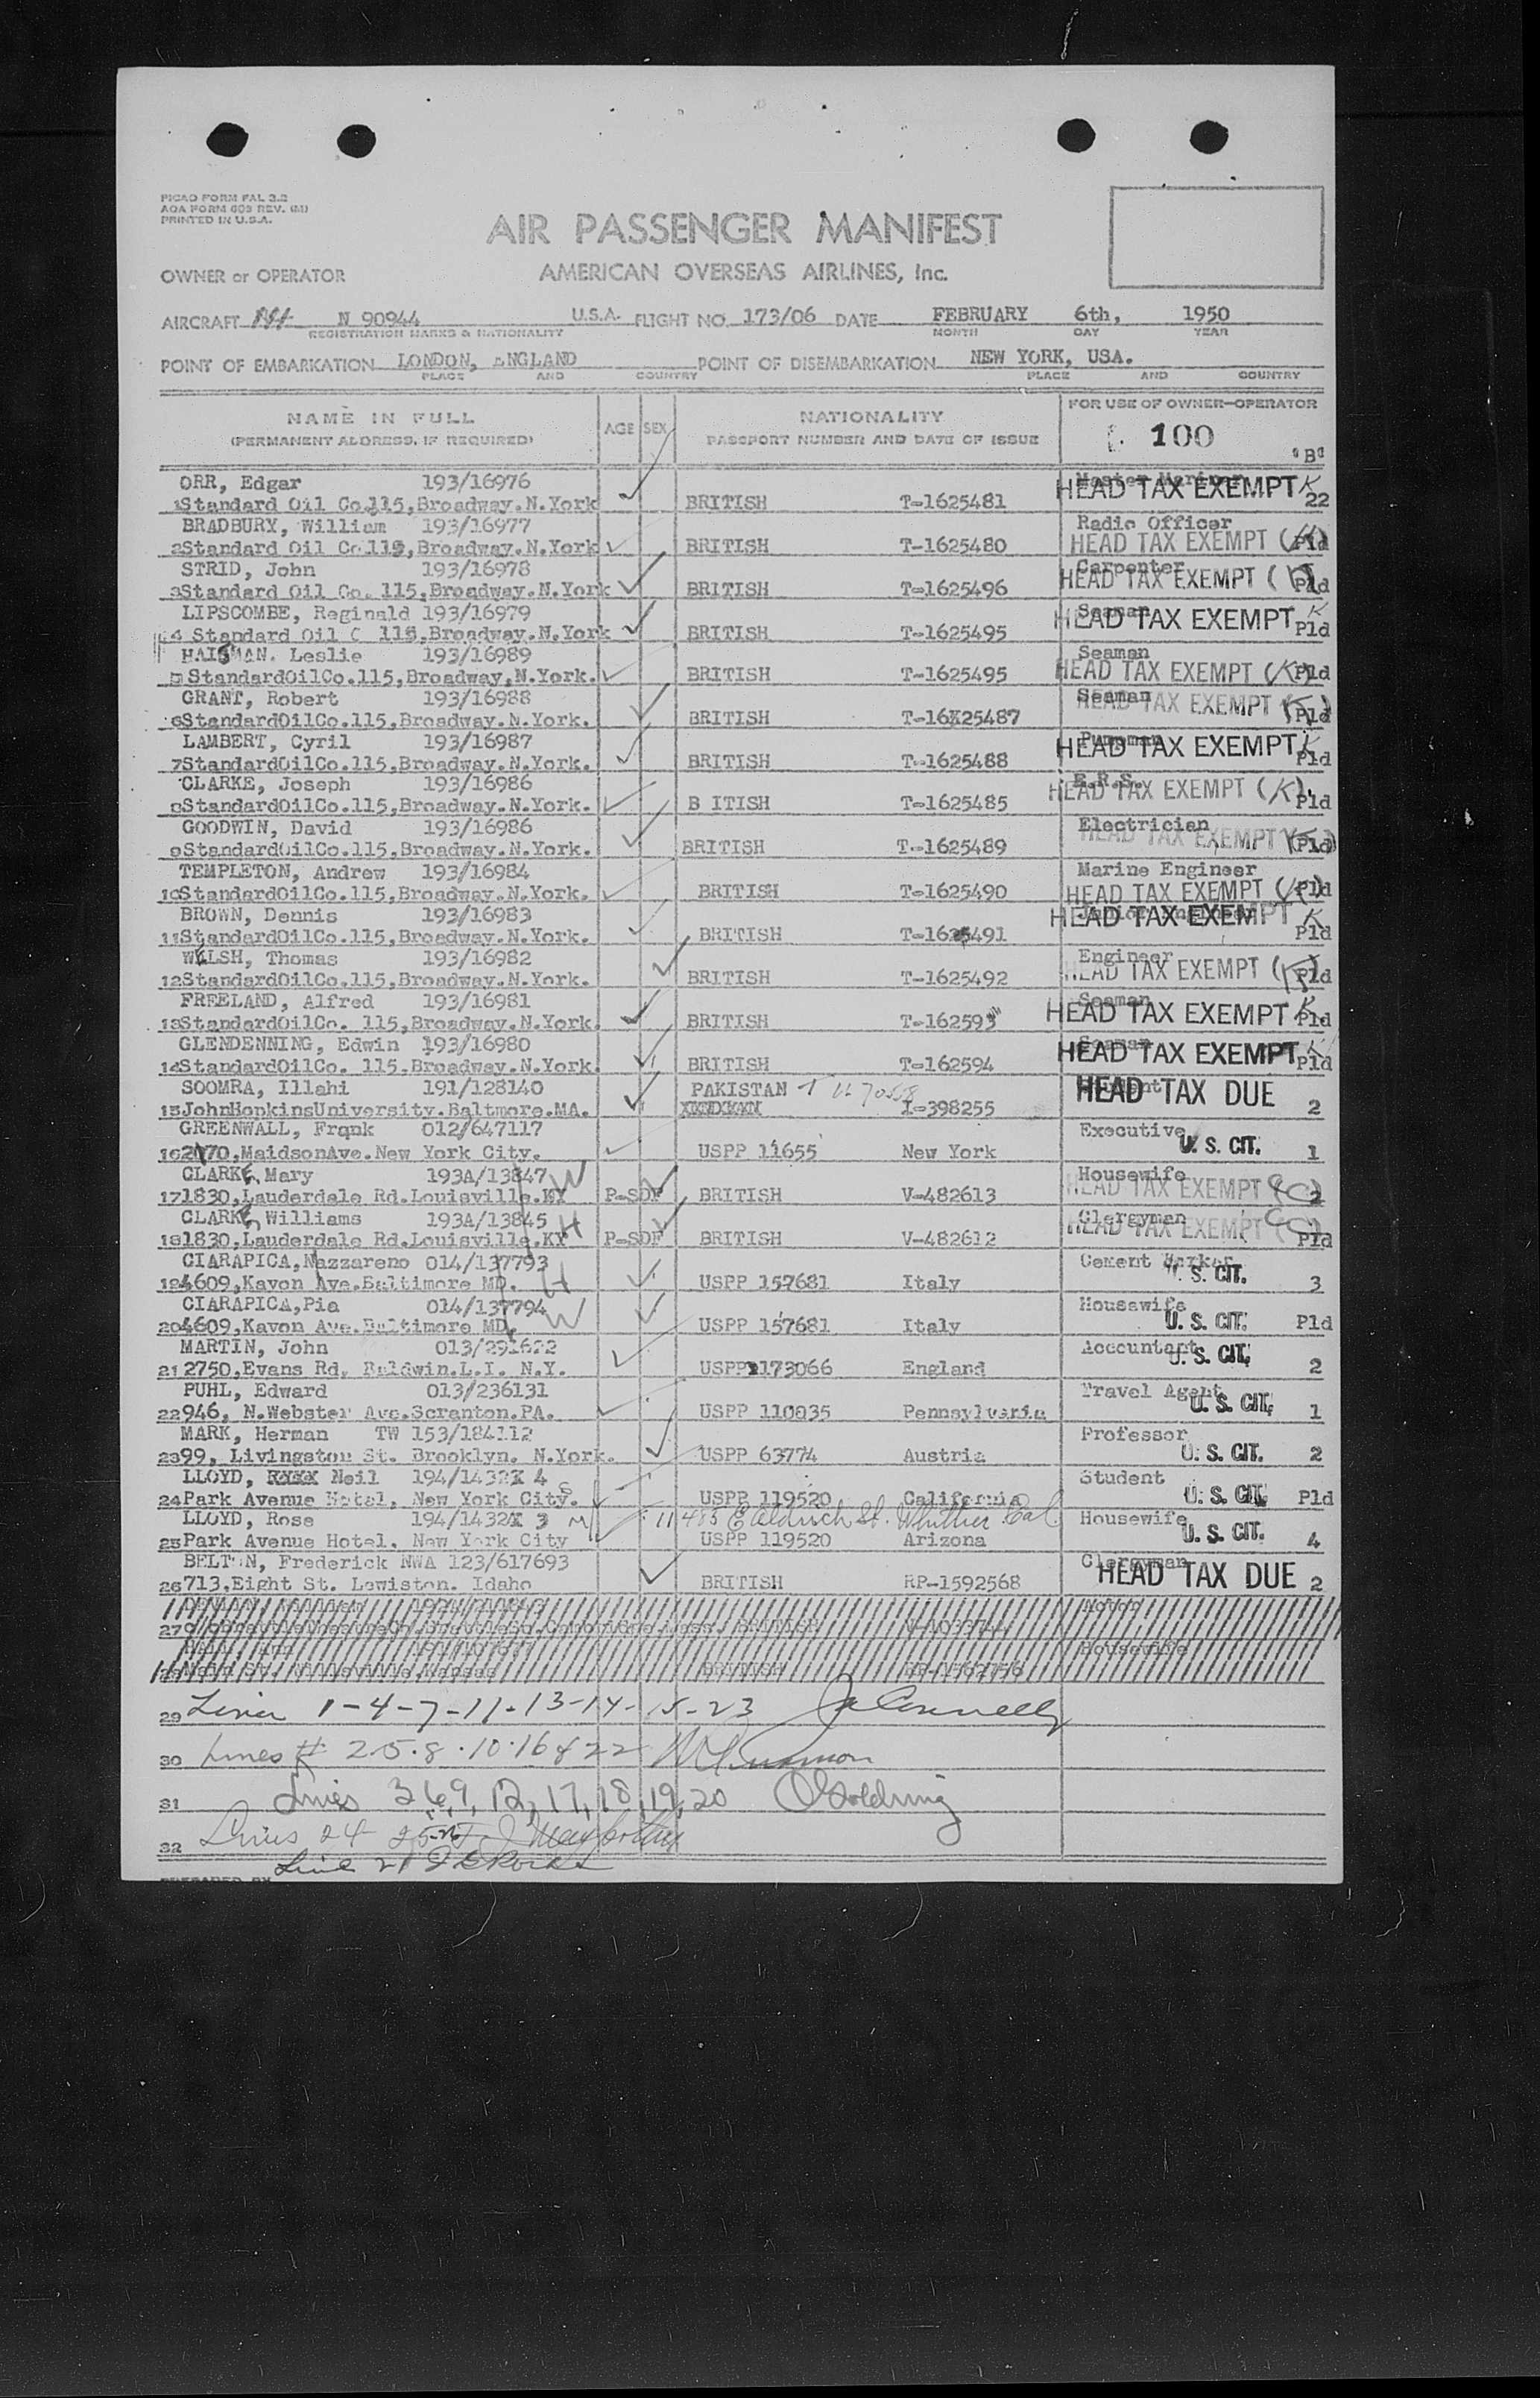 PICAO FORM FAL 3.2
AOA FORM 603 REV. (M)
PRINTED IN U.S.A.
AIR PASSENGER MANIFEST
OWNER or OPERATOR AMERICAN OVERSEAS AIRLINES, Inc.
AIRCRAFT N 90944 U.S.A. FLIGHT NO. 173/06 DATE FEBRUARY 6th, 1950
REGISTRATION MARKS & NATIONALITY MONTH DAY YEAR
POINT OF EMBARKATION LONDON, ENGLAND POINT OF DISEMBARKATION NEW YORK, USA.
PLACE AND COUNTRY PLACE AND COUNTRY
NAME IN FULL AGE SEX NATIONALITY FOR USE OF OWNER-OPERATOR
(PERMANENT ADDRESS, IF REQUIRED) PASSPORT NUMBER AND DATE OF ISSUE 100 "B"
ORR, Edgar 193/16976 Master Mariner
1 Standard Oil Co.115,Broadway.N.York BRITISH T-1625481 HEAD TAX EXEMPT K 22
BRADBURY, William 193/16977 Radio Officer
2 Standard Oil Co.115,Broadway.N.York BRITISH T-1625480 HEAD TAX EXEMPT (K) Pld
STRID, John 193/16978 Carpenter
3 Standard Oil Co. 115,Broadway.N.York BRITISH T-1625496 HEAD TAX EXEMPT (K) Pld
LIPSCOMBE, Reginald 193/16979 Seaman
4 Standard Oil C 115,Broadway.N.York BRITISH T-1625495 HEAD TAX EXEMPT K Pld
HAISMAN. Leslie 193/16989 Seaman
5 StandardOilCo.115,Broadway,N.York. BRITISH T-1625495 HEAD TAX EXEMPT (K) Pld
GRANT, Robert 193/16988 Seaman
6 StandardOilCo.115,Broadway.N.York. BRITISH T-16X25487 HEAD TAX EXEMPT (K) Pld
LAMBERT, Cyril 193/16987 Pumpman
7 StandardOilCo.115,Broadway.N.York. BRITISH T-1625488 HEAD TAX EXEMPT K Pld
CLARKE, Joseph 193/16986 E.R.S.
8 StandardOilCo.115,Broadway.N.York. B ITISH T-1625485 HEAD TAX EXEMPT (K) Pld
GOODWIN, David 193/16986 Electrician
9 StandardOilCo.115,Broadway.N.York. BRITISH T-1625489 HEAD TAX EXEMPT (K) Pld
TEMPLETON, Andrew 193/16984 Marine Engineer
10 StandardOilCo.115,Broadway.N.York. BRITISH T-1625490 HEAD TAX EXEMPT (K) Pld
BROWN, Dennis 193/16983 Junior Engineer
11 StandardOilCo.115,Broadway.N.York. BRITISH T-1625491 HEAD TAX EXEMPT K Pld
WELSH, Thomas 193/16982 Engineer
12 StandardOilCo.115,Broadway.N.York. BRITISH T-1625492 HEAD TAX EXEMPT (K) Pld
FREELAND, Alfred 193/16981 Seaman
13 StandardOilCo. 115,Broadway.N.York. BRITISH T-162593 HEAD TAX EXEMPT K Pld
GLENDENNING, Edwin 193/16980 Seaman
14 StandardOilCo. 115,Broadway.N.York. BRITISH T-162594 HEAD TAX EXEMPT K Pld
SOOMRA, Illahi 191/128140 PAKISTAN Student
15 JohnHopkinsUniversity.Baltmore.MA. I-398255 HEAD TAX DUE 2
GREENWALL, Frqnk 012/647117 Executive
16 2070,MaidsonAve.New York City. USPP 11655 New York U. S. CIT. 1
CLARKE, Mary 193A/13847 W Housewife
17 1830,Lauderdale Rd.Louisville.KY P-SDF BRITISH V-482613 HEAD TAX EXEMPT 2
CLARKE, Williams 193A/13845 H Clergyman
18 1830,Lauderdale Rd.Louisville.KY P-SDF BRITISH V-482612 HEAD TAX EXEMPT Pld
CIARAPICA,Nazzareno 014/137793 H Cement Worker
19 4609,Kavon Ave.Baltimore MD. USPP 157681 Italy U. S. CIT. 3
CIARAPICA,Pia 014/137794 W Housewife
20 4609,Kavon Ave.Baltimore MD. USPP 157681 Italy U. S. CIT. Pld
MARTIN, John 013/291622 Accountant
21 2750,Evans Rd, Baldwin.L.I. N.Y. USPP 173066 England U. S. CIT. 2
PUHL, Edward 013/236131 Travel Agent
22 946, N.Webster Ave.Scranton.PA. USPP 110835 Pennsylvania U. S. CIT. 1
MARK, Herman TW 153/184112 Professor
23 99, Livingston St. Brooklyn. N.York. USPP 63774 Austria U. S. CIT. 2
LLOYD, XXXX Neil 194/1432X 4 S Student
24 Park Avenue Hotel, New York City. USPP 119520 California U. S. CIT. Pld
LLOYD, Rose 194/1432X 3 M 11485 E Aldrich St. Whittier Cal. Housewife
25 Park Avenue Hotel, New York City USPP 119520 Arizona U. S. CIT. 4
BELTON, Frederick NWA 123/617693 Clergyman
26 713,Eight St. Lewiston. Idaho BRITISH RP-1592568 HEAD TAX DUE 2
27 BRITISH
28 Main St. Kansas BRITISH RP-1562756 Housewife
29 Lines 1-4-7-11-13-14-15-23
30 Lines # 2.5.8.10.16 & 22
31 Lines 3 6,9, 12, 17, 18, 19, 20
32 Lines 24 25
Line 21
PREPARED BY